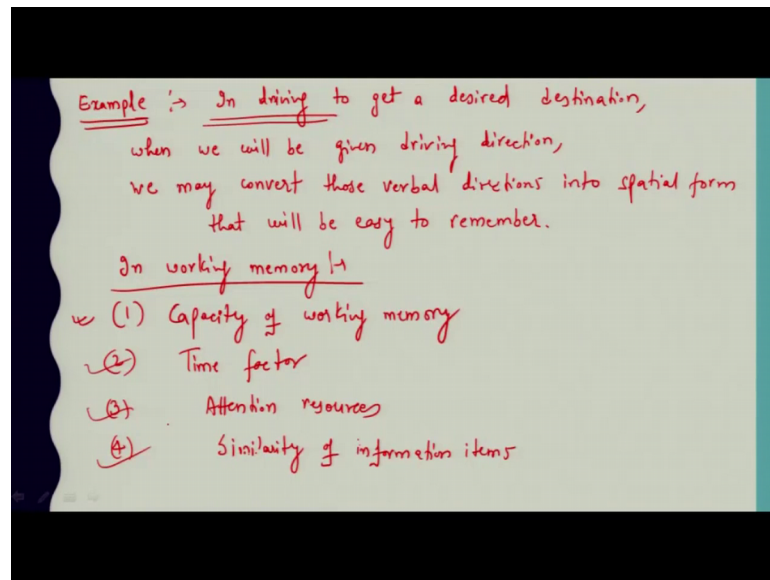 Example :→ In driving to get a desired destination,
when we will be given driving direction,
we may convert those verbal directions into spatial form
that will be easy to remember.
In working memory :→
(1) Capacity of working memory
(2) Time factor
(3) Attention resources
(4) Similarity of information items